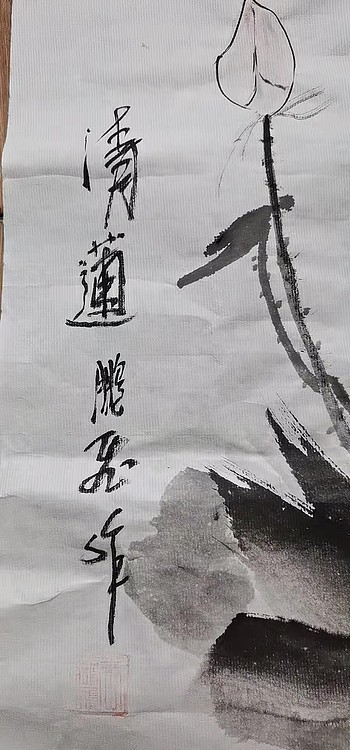 清蓮鹏飛作